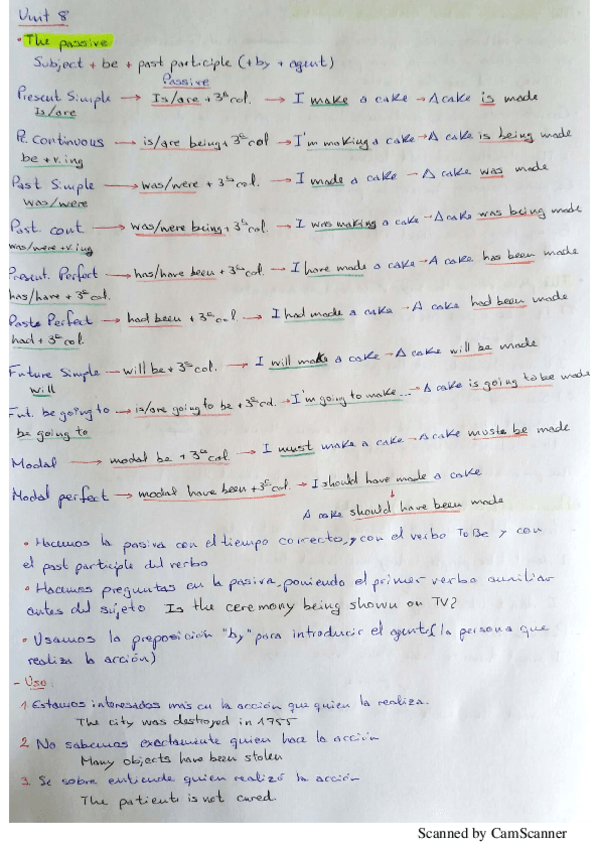 Unit 8
• The passive
Subject + be + past participle (+ by + agent)
Passive
Present Simple → Is/are + 3ª col. → I make a cake → A cake is made
Is/are
Pr. Continuous → is/are being + 3ª col → I'm making a cake → A cake is being made
be + v.ing
Past Simple → was/were + 3ª col. → I made a cake → A cake was made
was/were
Past. cont → was/were being + 3ª col. → I was making a cake → A cake was being made
was/were + v.ing
Present. Perfect → has/have been + 3ª col. → I have made a cake → A cake has been made
has/have + 3ª col.
Paste Perfect → had been + 3ª col → I had made a cake → A cake had been made
had + 3ª col.
Future Simple → will be + 3ª col. → I will make a cake → A cake will be made
will
Fut. be going to → is/are going to be + 3ª col. → I'm going to make... → A cake is going to be made
be going to
Modal → modal be + 3ª col → I must make a cake → A cake muste be made
Modal perfect → modal have been + 3ª col. → I should have made a cake
↓
A cake should have been made
• Hacemos la pasiva con el tiempo correcto, y con el verbo To Be y con
el past participle del verbo
• Hacemos preguntas en la pasiva, poniendo el primer verbo auxiliar
antes del sujeto Is the ceremony being shown on TV?
• Usamos la preposición "by" para introducir el agente (la persona que
realiza la acción)
- Uso:
1 Estamos interesados más en la acción que quien la realiza.
The city was destroyed in 1755
2 No sabemos exactamente quien hace la acción
Many objects have been stolen
3 Se sobre entiende quien realizó la acción
The patient is not cured.
Scanned by CamScanner